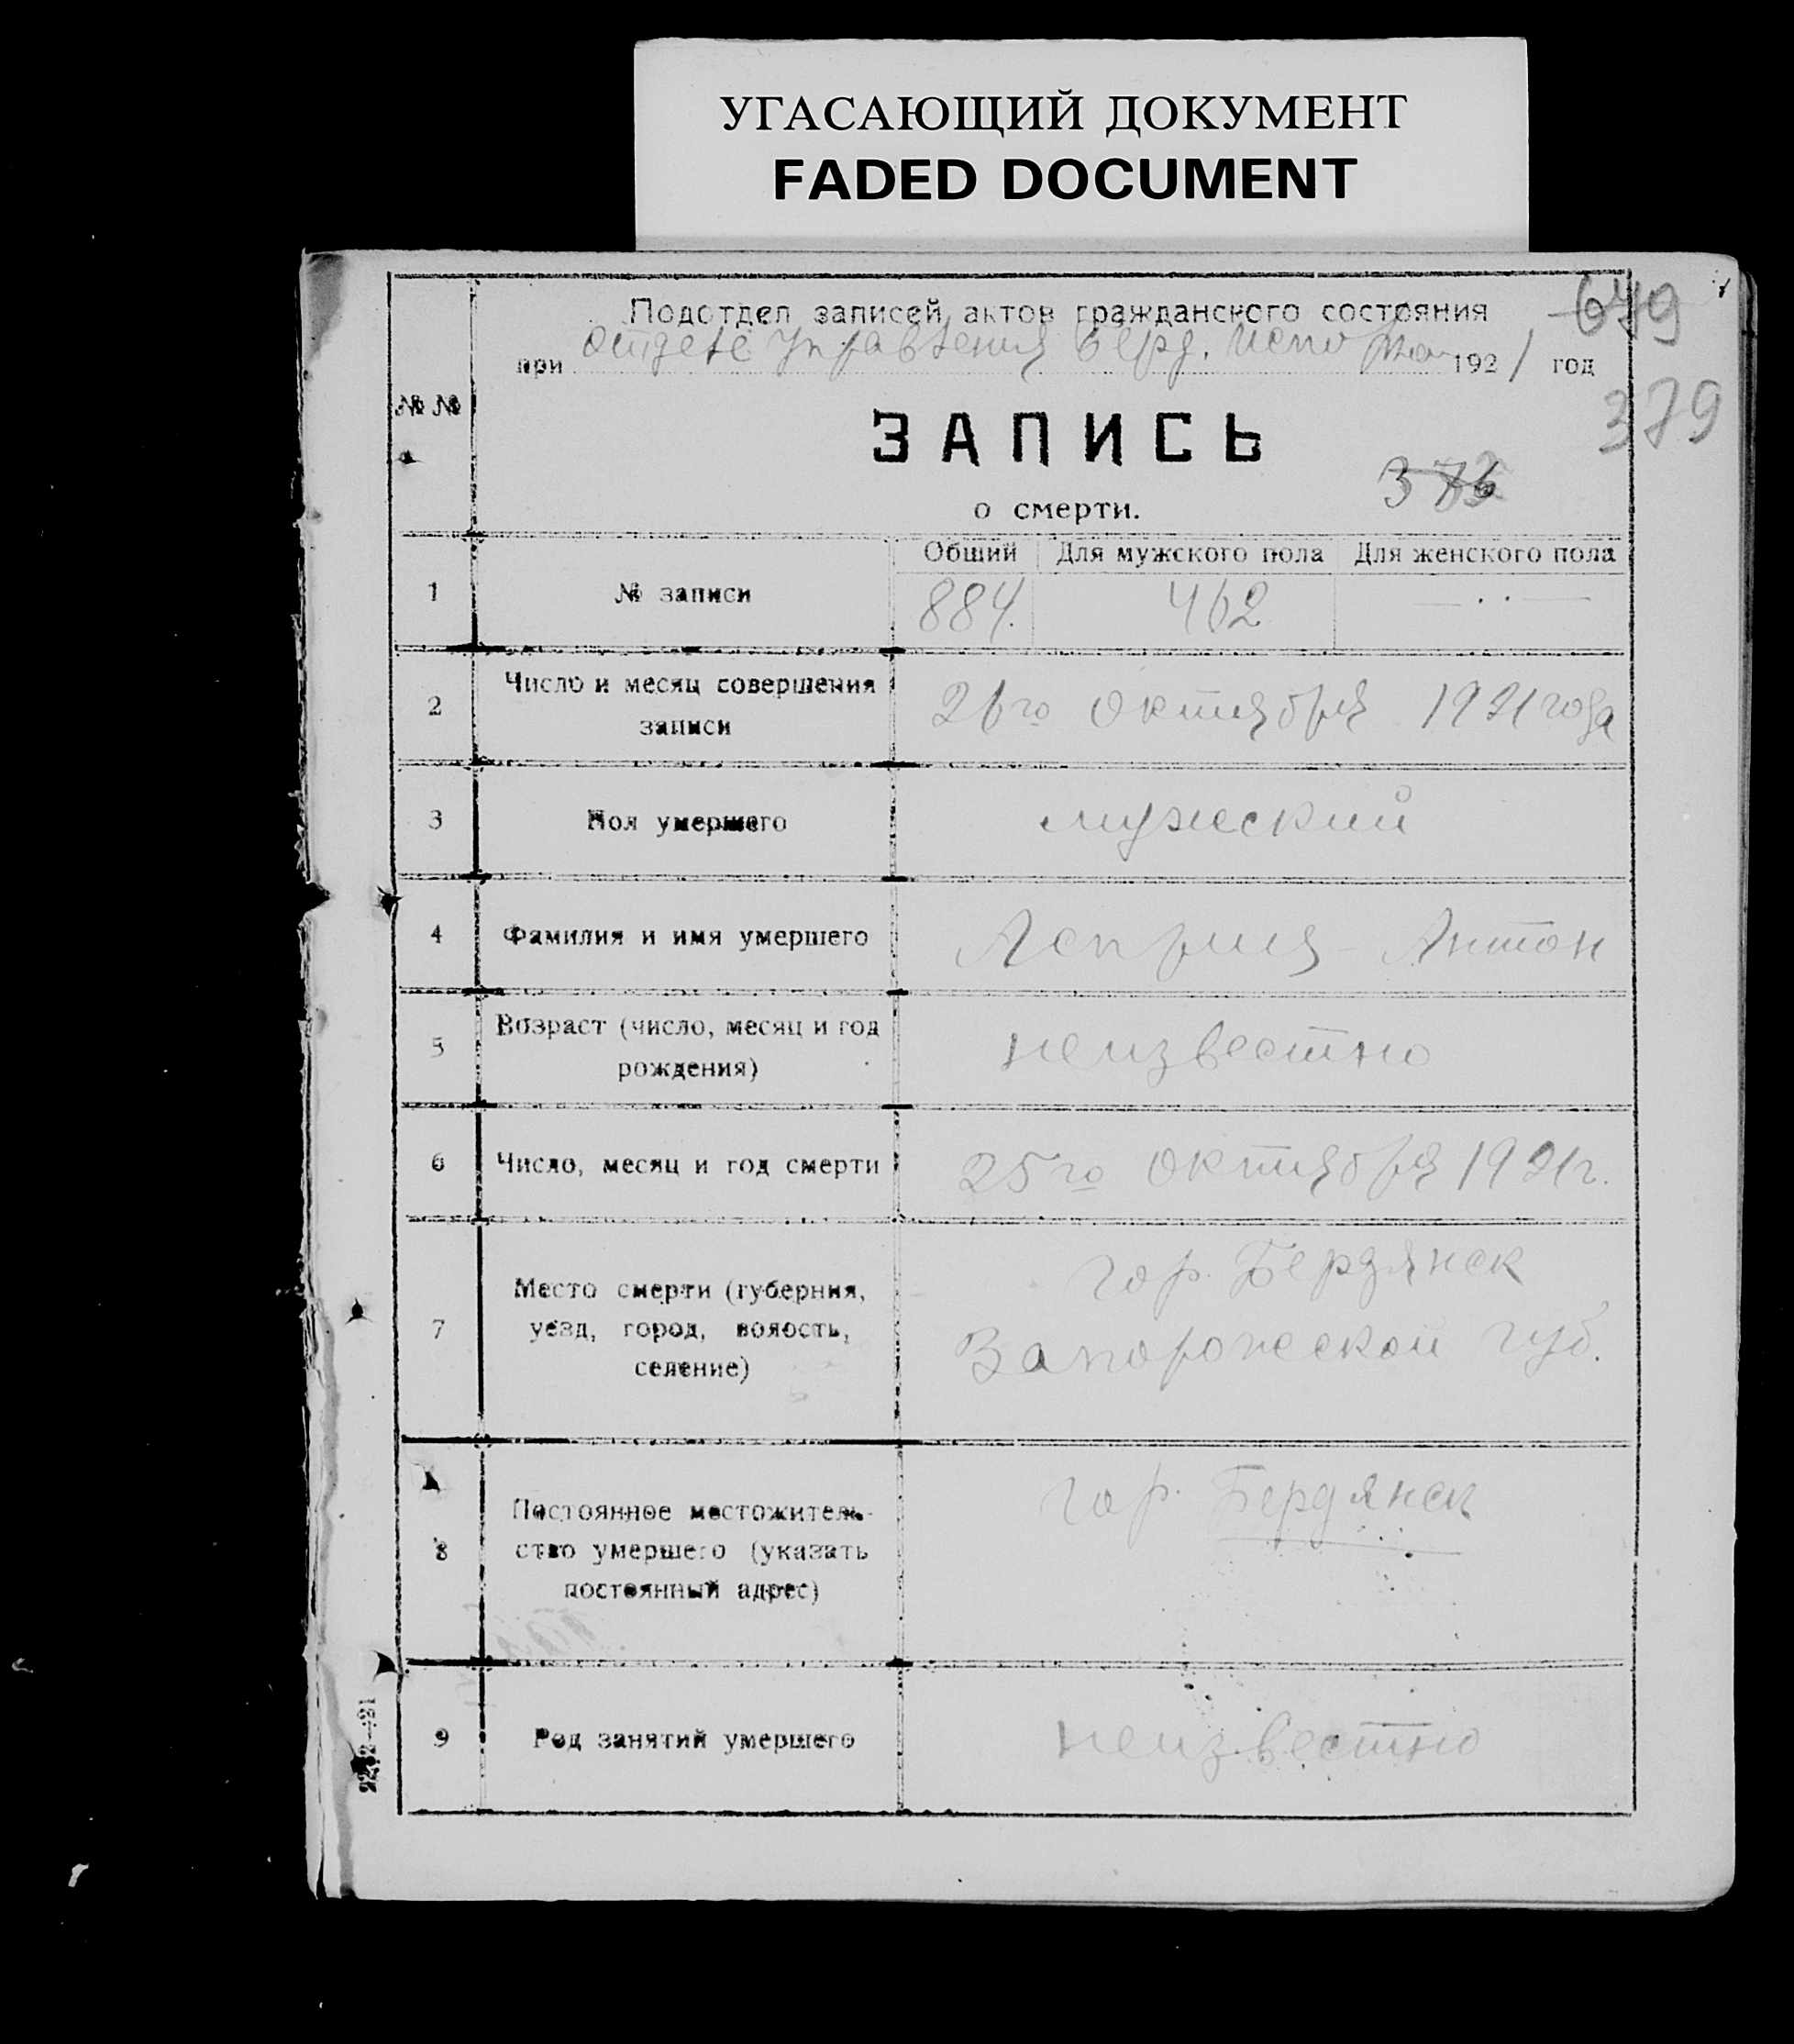 УГАСАЮЩИЙ ДОКУМЕНТ
FADED DOCUMENT
649
Подотдел записей актов гражданского состояния
при отделе Управления Берд. 1921 год
379
№ №
ЗАПИСЬ
о смерти.
Общий Для мужского пола Для женского пола
1 № записи 884. 462 — · · —
2 Число и месяц совершения
записи
26го октября 1921 года
3 Пол умершего мужеский
4 Фамилия и имя умершего Асприц - Антон
5 Возраст (число, месяц и год
рождения)
неизвестно
6 Число, месяц и год смерти 25го октября 1921г.
7 Место смерти (губерния,
уезд, город, волость,
селение)
гор. Бердянск
Запорожеской губ.
8 Постоянное местожитель-
ство умершего (указать
постоянный адрес)
гор. Бердянск
9 Род занятий умершего неизвестно